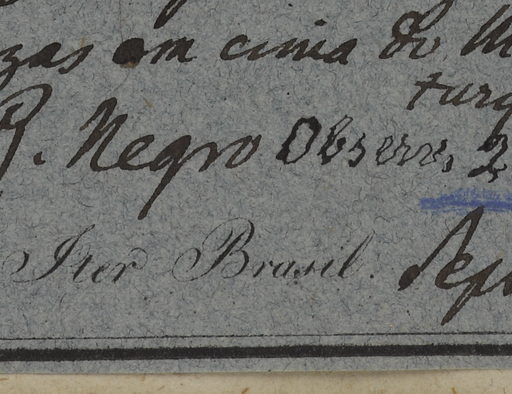 zas em cima do M
turg
R. Negro Observ. 2
Iter Brasil. Sept